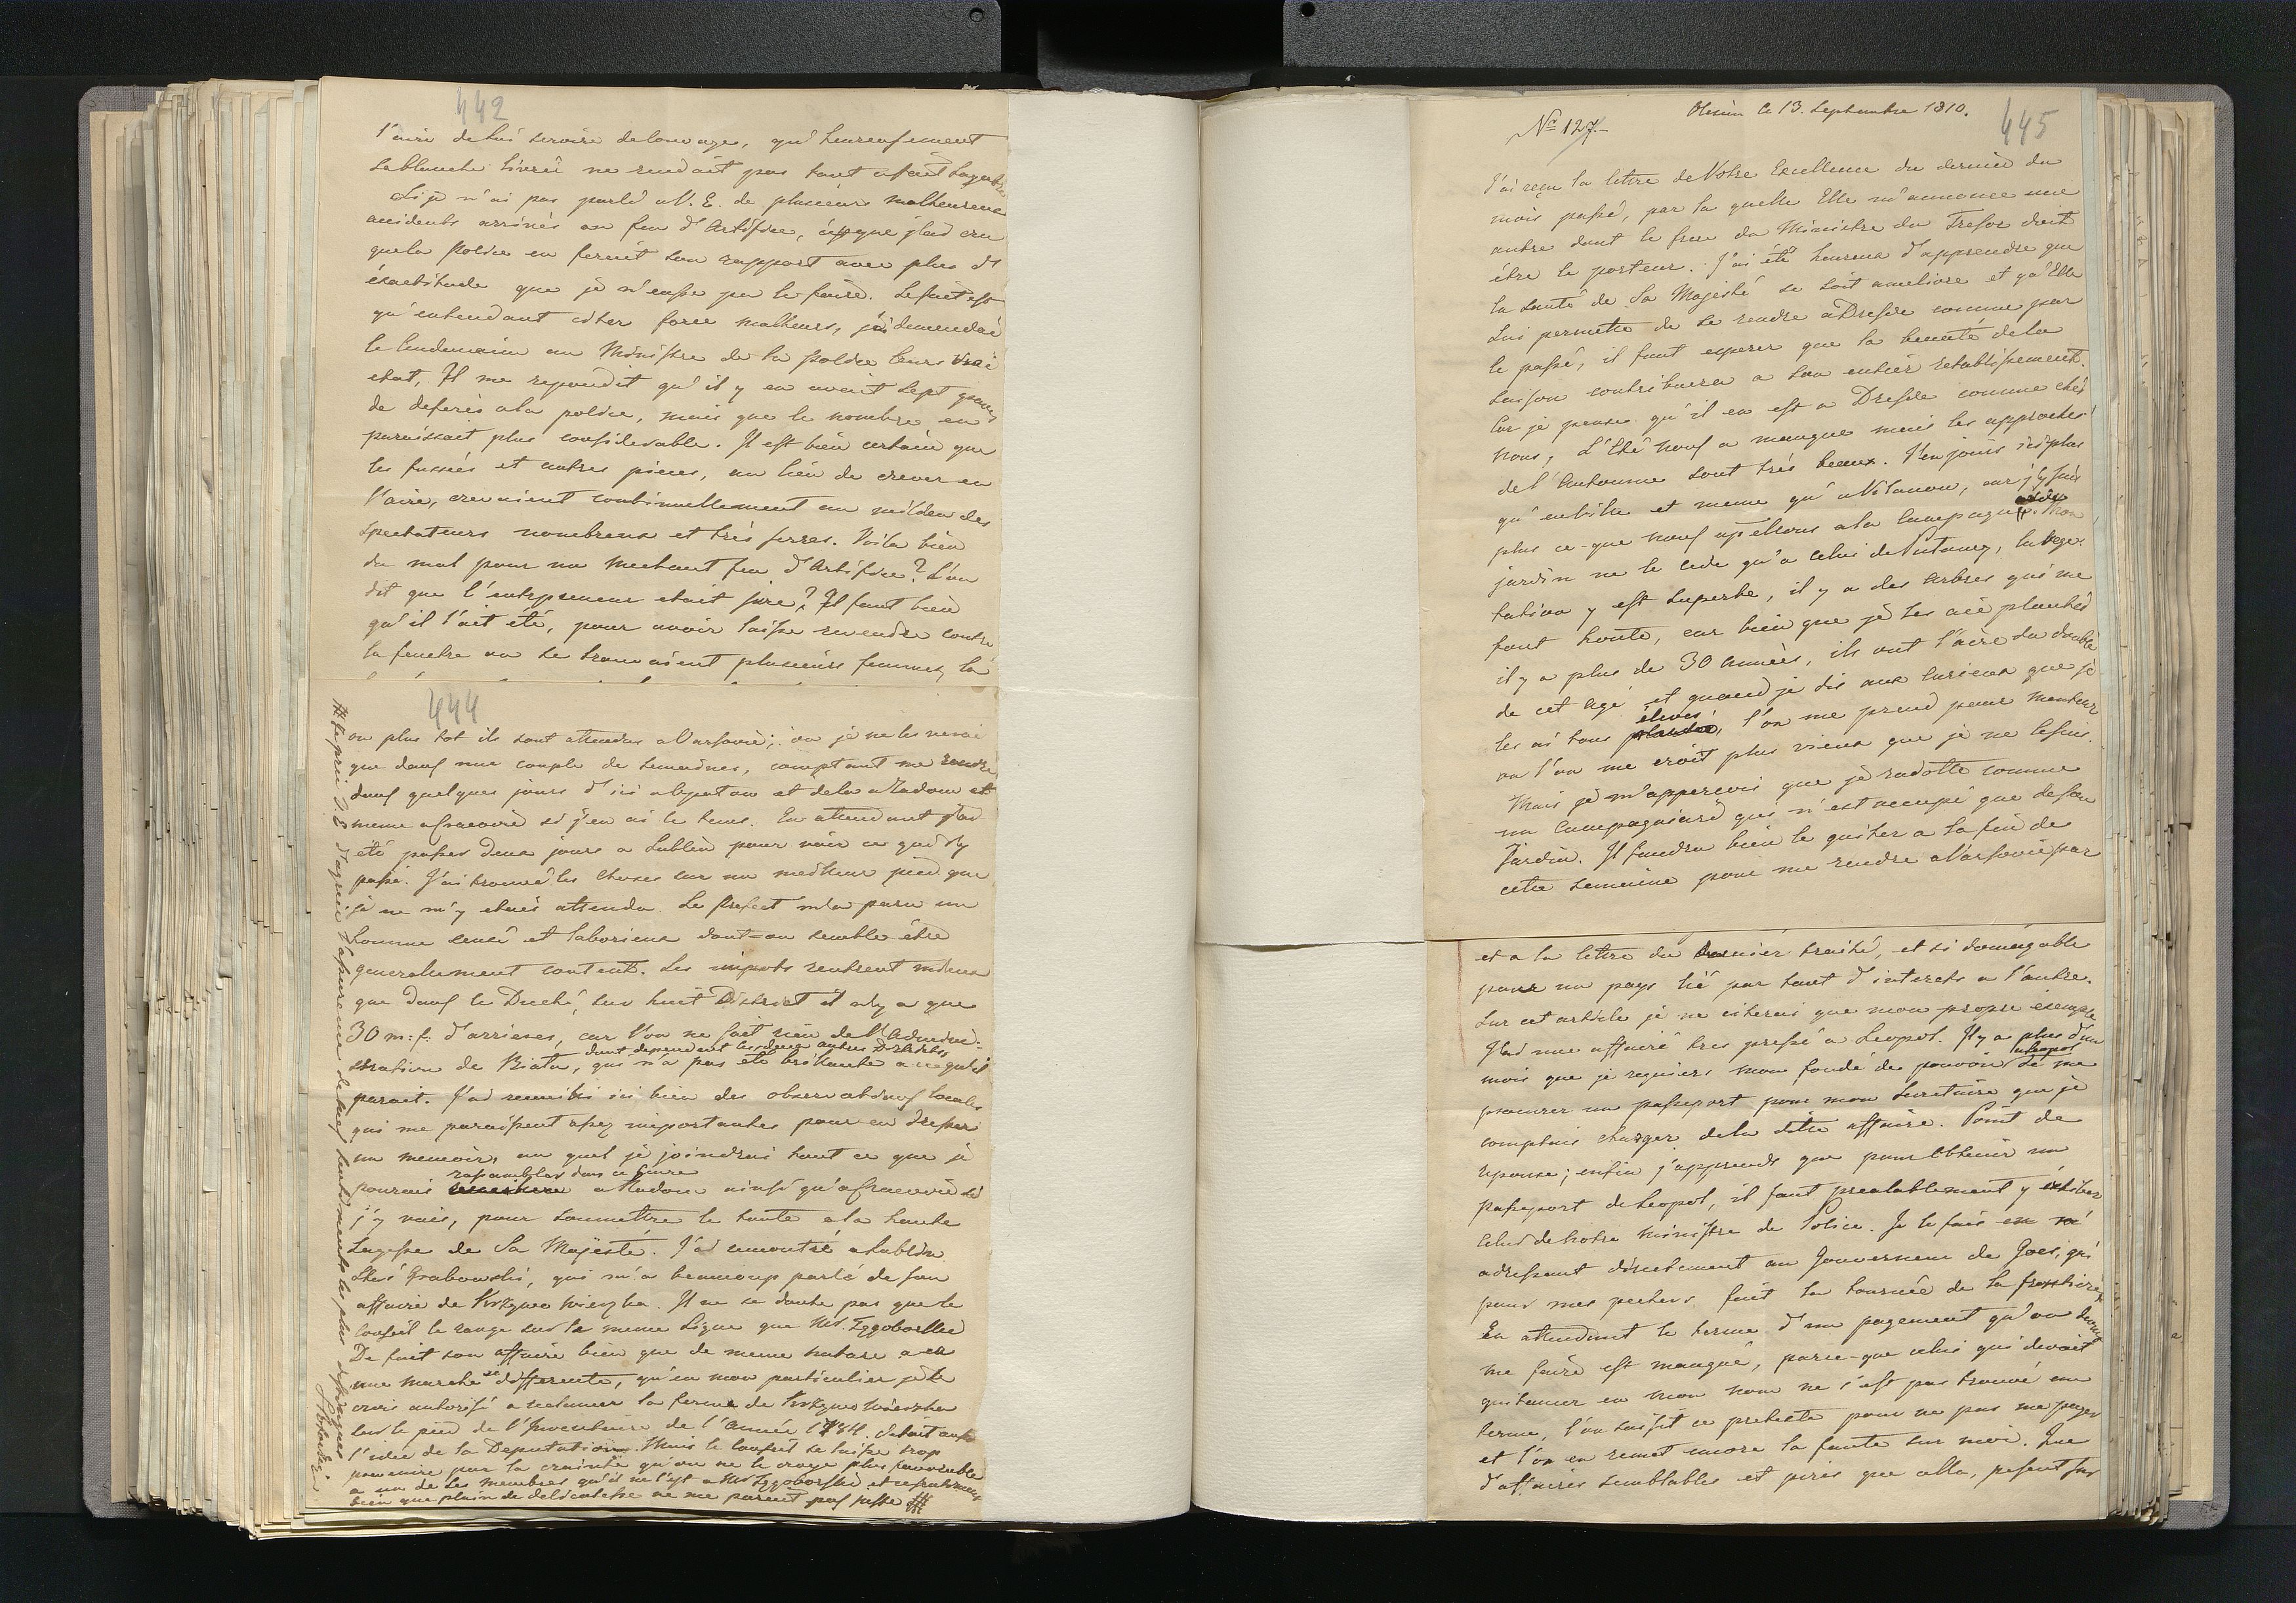 442
l'aire de lui servire de louage, qu'heureusement
la blanche livreé ne rendait pas tout a fait
Si je n'ai pas parlé a V. E. de plusieurs malheureux
accidents arrivés au feu d'Artifice, c'est que j'ai cru
que la police en ferait son rapport avec plus d'
éxactitude que je n'eusse pu le faire. Le fait est
qu'entendant citer force malheurs, j'ai demandai
le lendemain au Ministre de la police leurs vrai
etat, Il me repondit qu'il y en avait sept
de deferés a la police, mais que le nombre en
paraissait plus considerable. Il est bien certain que
les fusseés et autres pieces, au lieu de crever en
l'aire, crevaient continuellement au milieu des
spectateurs nombreux et très serres. Voila bien
du mal pour un mechant feu d'Artifice? L'on
dit que l'entrepreneur etait ivre? Il faut bien
qu'il l'ait été, pour avoir laisse contre
la fenetre ou se trouvaient plusieurs femmes, la
444
ou plus tot ils sont attendus a Varsovie; ou je ne les verai
que dans une couple de semaines, comptant me rendre
dans quelques jours d'ici a et dela a Radom et
meme a Cracovie si j'en ai le tems. En attendant j'ai
eté passer deux jours a Lublin pour voir ce qui s'y
passe. J'ai trouvé les choses sur un meilleur pied que
je ne m'y etais attendu. Le Prefect m'a paru un
homme sensé et laborieux dont on semble être
generalement content. Les impots rentrent mieux
que dans le Duché, sur huit District il n'y a que
30 m: f: d'arrieres, car l'on ne sait rien de l'Admini-
stration de Biała, dont dependent les deux autres Districts, qui n'a pas été brillante a ce qu'il
parait. J'ai recueilli ici bien des observations locales
qui me paraissent assez importantes pour en dresser
un memoire, au quel je joindrai tout ce que je
pourai rassembler dans ce genre a Radom ainsi qu'a Cracovie si
j'y vais, pour soumettre le toute a la haute
Sagesse de Sa Majesté. J'ai rencontré a Lublin
Grabowski, qui m'a beaucoup parlé de son
affaire de Krzywo wierzba. Il ne se doute pas que le
conseil le range sur la meme Ligne que Mr. Zggoborski
De fait son affaire bien que de meme nature a eu
une marche si differente, qu'en mon particulier je le
crois autorisé a reclamer la ferme de Krzywo wierzba
sur le pied de l'Inventaire de l'année 1784. C'etait aussi
l'idée de la Deputation. Mais le conseil se laisse trop
prevenire par la crainte qu'on ne le croye plus favorable
a un de ses membres qu'il ne l'est a Mr Zggoborski et ce
bien que plein de delicatesse ne me parait pas juste #
# Je prie V. E. d'agréer l'assurance de mes sentiments les plus distingués
445
Olesin le 13. Septembre 1810.
No 127.
J'ai reçu la lettre de Votre Excellence du dernier du
mois passé, par la quelle Elle m'annonce une
autre dont le frere du Ministre du Tresor doit
être le porteur. J'ai été heureux d'apprendre que
la santé de Sa Majesté se soit ameliore et qu'Elle
Lui permette de se rendre a Dresde comme par
le passé, il faut esperer que la beauté de la
saison contribuera a son entier retablissement.
Car je pense qu'il en est a Dresde comme chès
nous, L'Eté nous a manque mais les approches
de l'Automne sont très beaux. J'en jouis ici plus
qu'en ville et meme qu'a Vilanow, car j'y suis
plus ce-que nous apellons a la Campagne. Mon
jardin ne le cede qu'a celui de Putawy, la vege-
tation y est superbe, il y a des Arbres qui me
font honte, car bien que je les aie plantés
il y a plus de 30 années, ils ont l'aire du double
de cet age et quand je dis aux curieux que je
les ai tous élevés, l'on me prend pour menteur
ou l'on me croit plus vieux que je ne le suis.
Mais je m'appercois que je radotte comme
un Campagnard qui n'est occupé que de son
Jardin. Il faudra bien le quiter a la fin de
cette semaine pour me rendre a Varsovie par
et a la lettre du dernier traité, et si domagable
pour un pays lié par tant d'interets a l'autre.
Sur cet article je ne citerai que mon propre exemple
J'ai une affaire très pressé a Leopol. Il y a plus d'un
mois que je requiers mon fondé de pouvoir a Leopol de me
procurer un passeport pour mon Secretaire que je
comptais charger de la dite affaire. Point de
reponse; enfin j'apprends que pour obtenir un
passeport de Leopol, il faut prealablement y exhiber
celui de notre Ministre de Police. Je le fais en m'
adressant directement au Gouverneur de Goes, qui
pour mes pechers fait la tournée de la frontiere.
En attendant le terme d'un payement qu'on devait
me faire est manqué, parce-que celui qui devait
quitancer en mon nom ne s'est pas trouvé au
terme, l'on saisit ce pretexte pour ne pas me payer
et l'on en remet encore la faute sur moi. Que
d'affaires semblables et pires que cella, pesent sur